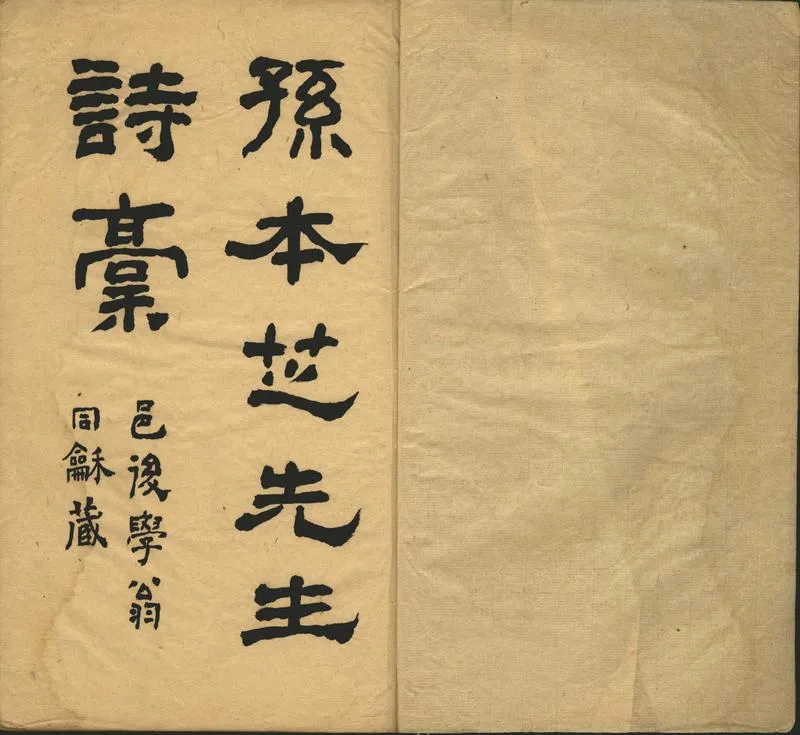 孫本芝先生
詩藁
邑後學翁
同龢藏